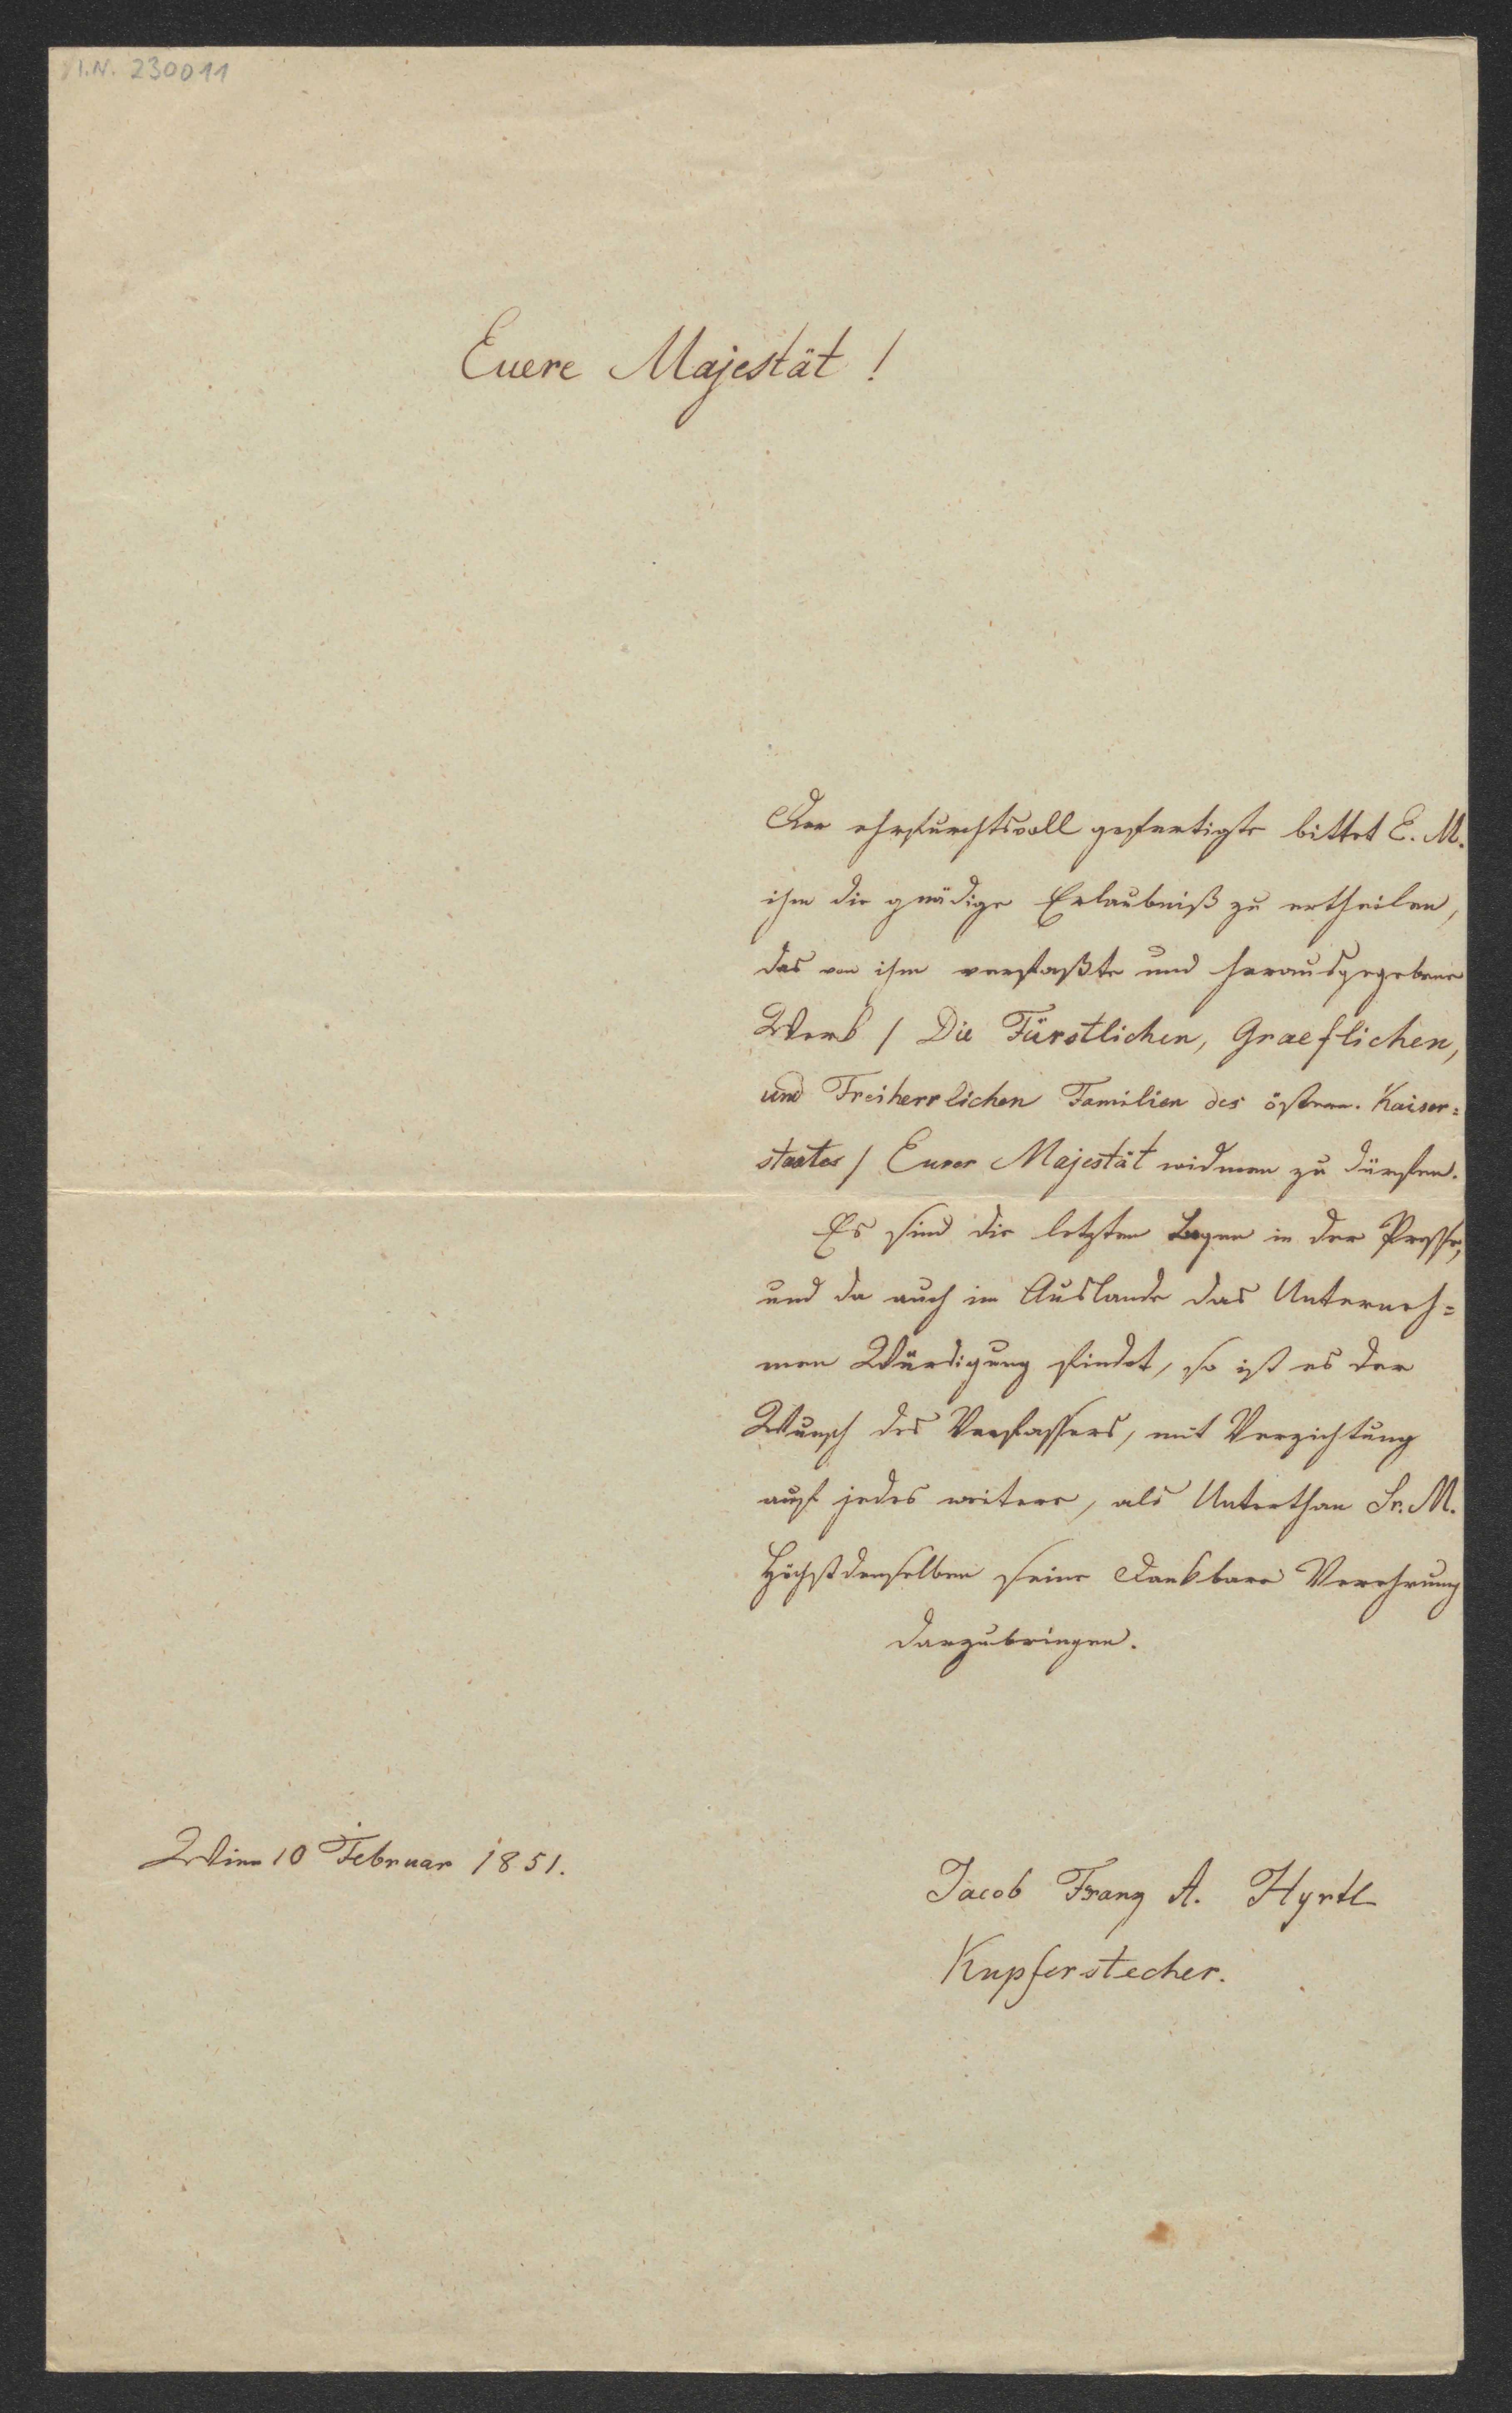 I.N. 230011
Euere Majestät!
Der ehrfurchtsvoll gefertigte bittet E. M.
ihm die gnädige Erlaubniß zu ertheilen,
das von ihm verfaßte und herausgegebene
Werk / Die Fürstlichen, Graeflichen,
und Freiherrlichen Familien des österr. Kaiser=
staates / Eurer Majestät widmen zu dürfen.
Es sind die letzten Bogen in der Presse,
und da auch im Auslande das Unterneh=
men Würdigung findet, so ist es der
Wunsch des Verfassers, mit Verzichtung
auf jedes weitere, als Unterthan Sr. M.
Höchstdenselben seine dankbare Verehrung
darzubringen.
Wien 10 Februar 1851.
Jacob Franz A. Hyrtl
Kupferstecher.